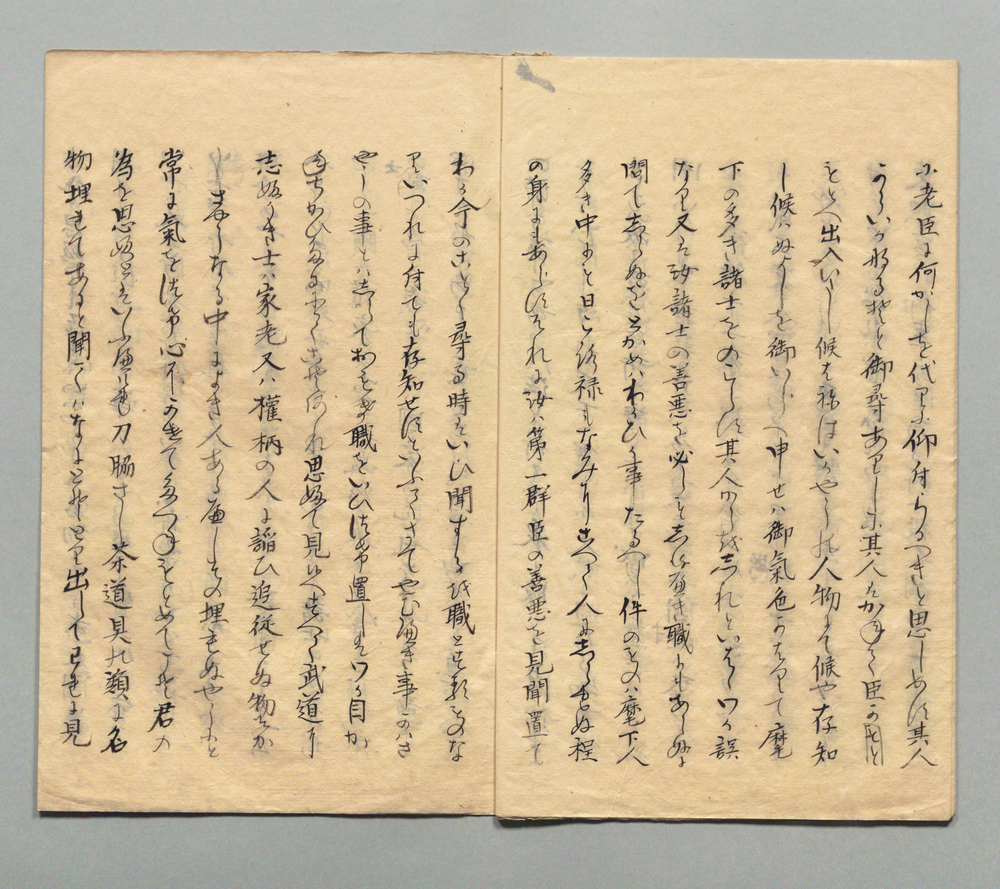 に老臣に何がしを代りに仰付らるへきと思しめす其人
からいか成るそと御尋ありし に其人たかねて臣かもと
をとへ出入いたし候はねはいかやうの人物にて候や存知
し候はぬよしを御いらへ申せは御氣色かはりて麾
下の多き諸士をのこらす其人からを志れといはゝワか誤
なり又は汝諸士の善悪を必しも志るへき職にもあらぬに
問て志らぬをとかめはわかひか事たるへし件のものハ麾下人
多き中にも日ころ禄もなみりこへて人に志らるゝ程
の身にもあらすそれに汝ハ第一群臣の善悪を見聞置て
わか今のことく尋る時はいひ聞するを職とする者のな
りいつれに付ても存知せすといふてさてやむへき事かハさ
やうの事とハ志らておもき職をいひ付置しはワか目か
ねちかひなるにこそ思ふて見はへすへて武道に
志ふかき士ハ家老又ハ權柄の人に諂ひ追従せぬ物なか
し よろしなる中によき人ある へしその埋もれぬやうにと
常に氣を付け心にかけてたつねもとめてこそ君の
為を思ふとはいふへけれ刀脇さし茶道具の類に名
物埋れてあると聞てハなにとそとり出してわれに見